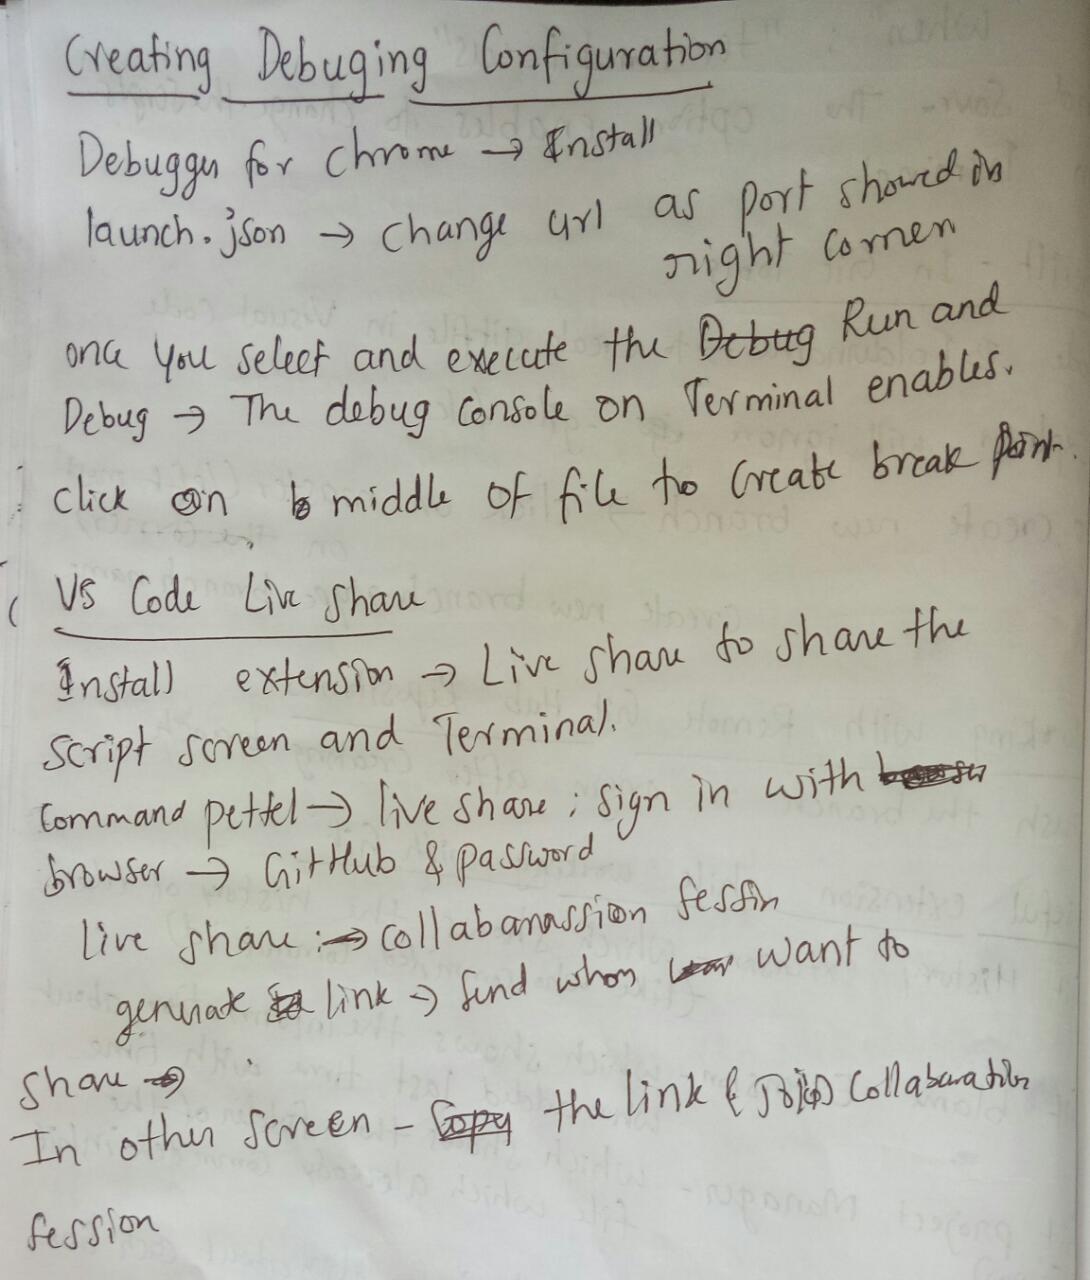 Creating Debuging Configuration
Debugger for chrome → Install
launch.json → change url as port showed in
right corner
once you select and execute the Debug Run and
Debug → The debug console on Terminal enables.
click on middle of file to create break point.
VS Code Live Share
Install extension → Live share to share the
Script screen and Terminal.
Command pettel → live share ; sign in with
browser → GitHub & password
live share : → collabarassion session
generate link → send whom want to
share →
In other screen - Copy the link & Join Collabaration
session